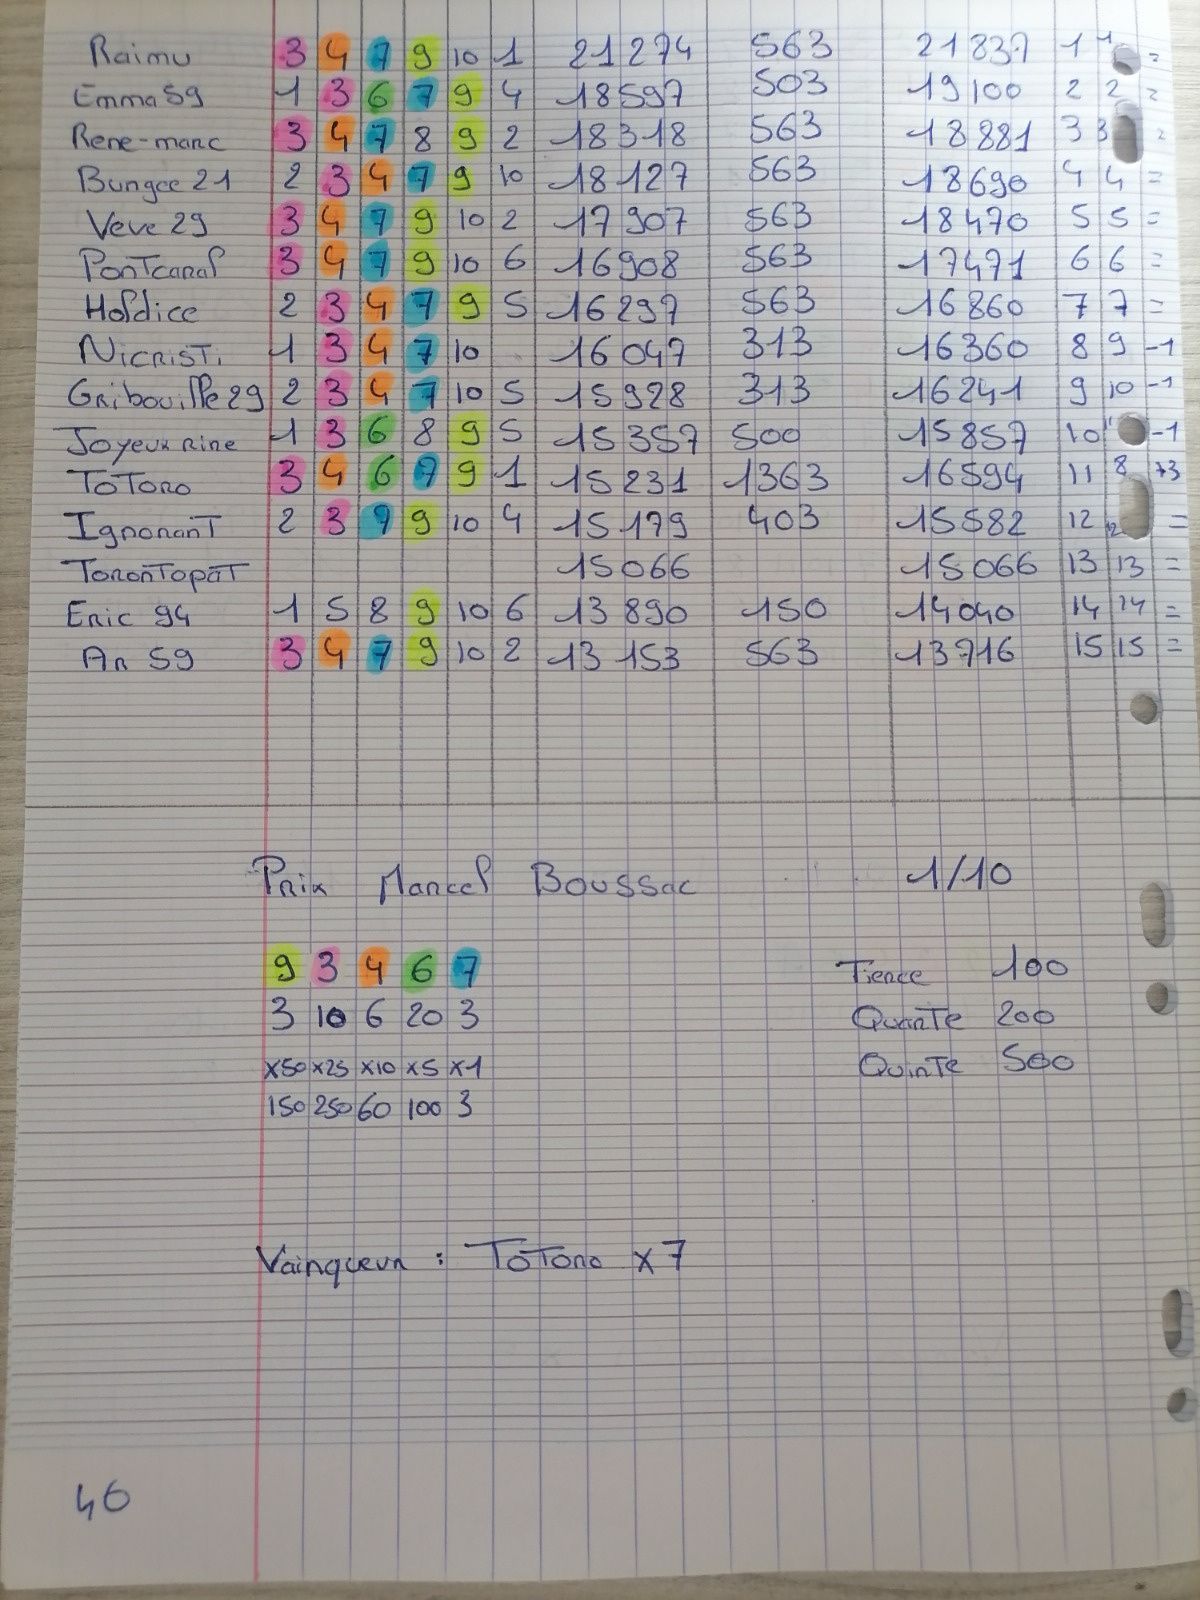 Raimu 3 4 7 9 10 1 21 274 563 21 837 1 1 =
Emma 59 1 3 6 7 9 4 18 597 503 19 100 2 2 =
Rene-marc 3 4 7 8 9 2 18 318 563 18 881 3 3 =
Bungee 21 2 3 4 7 9 10 18 127 563 18 690 4 4 =
Veve 29 3 4 7 9 10 2 17 907 563 18 470 5 5 =
Pontcanal 3 4 7 9 10 6 16 908 563 17 471 6 6 =
Holdice 2 3 4 7 9 5 16 297 563 16 860 7 7 =
Nicristi 1 3 4 7 10 16 047 313 16 360 8 9 -1
Gribouille 29 2 3 4 7 10 5 15 928 313 16 241 9 10 -1
Joyeux rine 1 3 6 8 9 5 15 357 500 15 857 10 -1
Totoro 3 4 6 7 9 1 15 231 1363 16 594 11 8 +3
Ignorant 2 3 7 9 10 4 15 179 403 15 582 12 =
Torontopat 15 066 15 066 13 13 =
Eric 94 1 5 8 9 10 6 13 890 150 14 040 14 14 =
An 59 3 4 7 9 10 2 13 153 563 13 716 15 15 =
Prix Marcel Boussac 1/10
9 3 4 6 7 Tierce 100
3 10 6 20 3 Quarte 200
x50 x25 x10 x5 x1 Quinte 500
150 250 60 100 3
Vainqueur : Totoro x 7
46